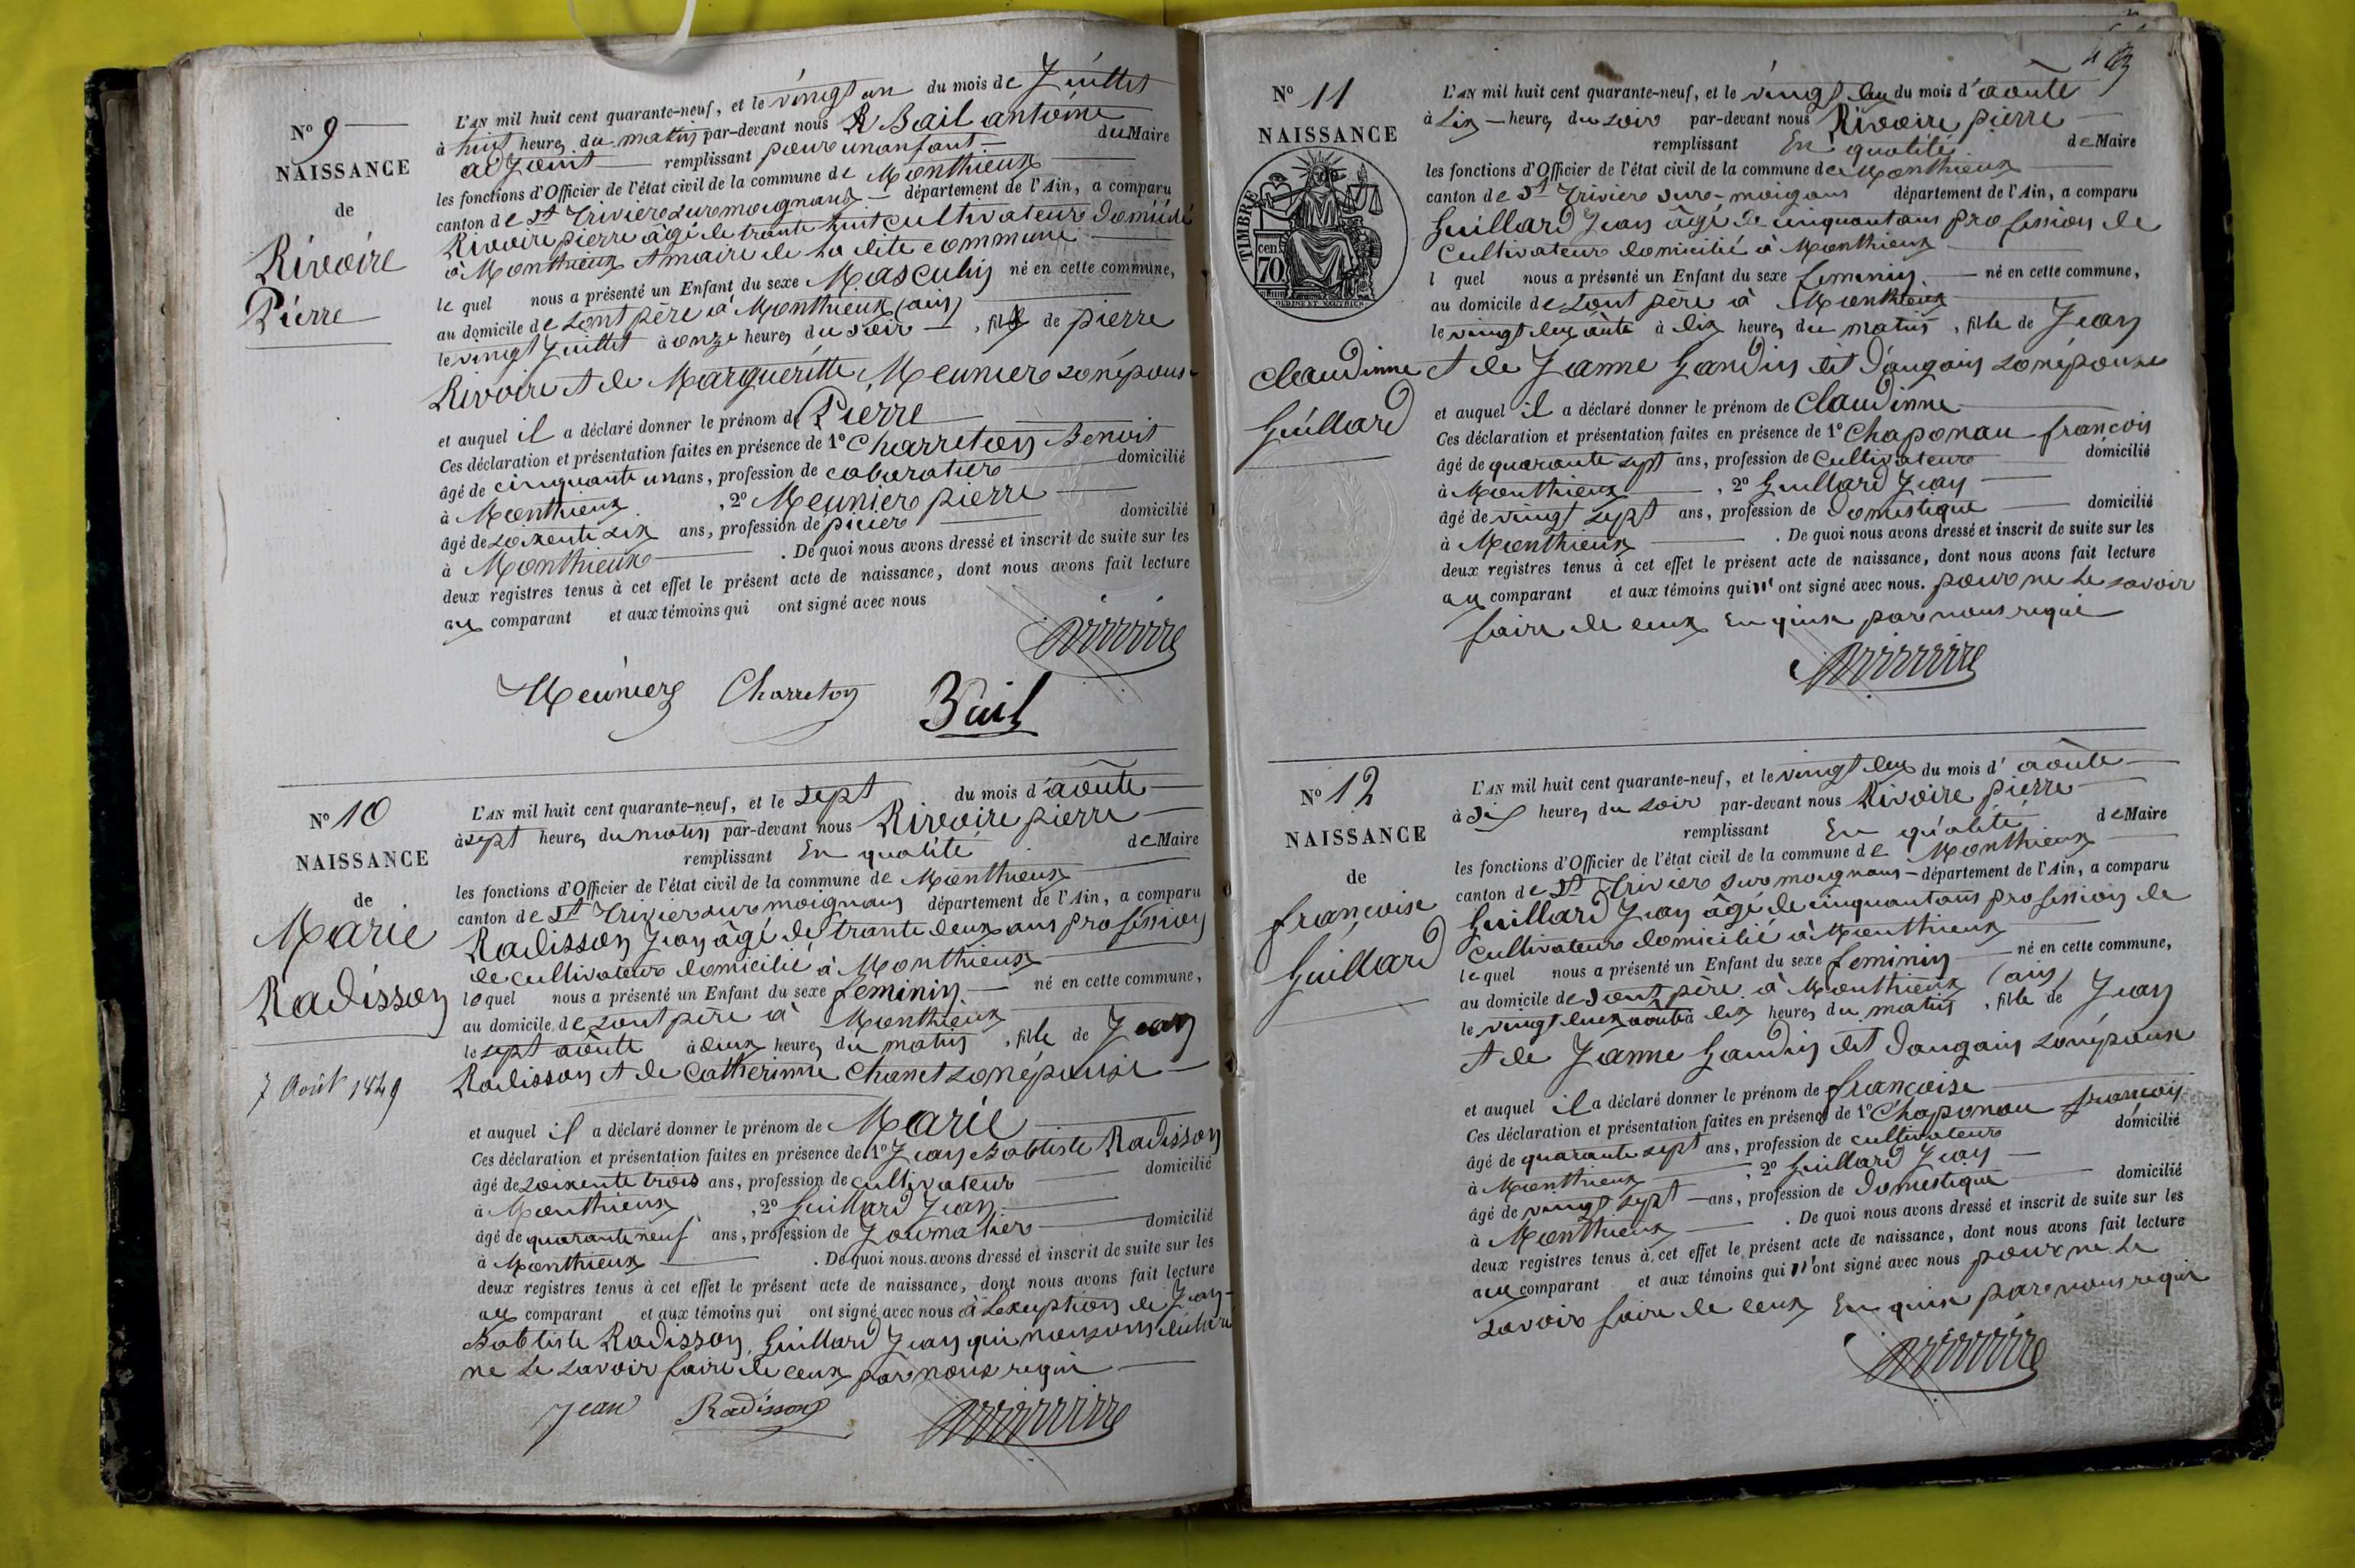 N° 9
NAISSANCE
de
Rivoire
Pierre
L'AN mil huit cent quarante-neuf, et le vingt un du mois de Juillet
à huit heures du matin par-devant nous Bail antoine
adjoint remplissant pour un anfant du Maire
les fonctions d'Officier de l'état civil de la commune de Monthieux
canton de St Trivier sur moignans département de l'Ain, a comparu
Rivoire pierre âgé de trante huit cultivateur domicilié
à Monthieux et maire de la dite commune
le quel nous a présenté un Enfant du sexe Masculin né en cette commune,
au domicile de sont père à Monthieux (ain)
le vingt Juillet à onze heures du soir, fils de pierre
Rivoire et de Margueritte Meunier son épouse
et auquel il a déclaré donner le prénom de Pierre
Ces déclaration et présentation faites en présence de 1° Charreton Benoit
âgé de cinquante un ans, profession de cabaratier domicilié
à Monthieux, 2° Meunier pierre
âgé de soixente six ans, profession de domicilié
à Monthieux. De quoi nous avons dressé et inscrit de suite sur les
deux registres tenus à cet effet le présent acte de naissance, dont nous avons fait lecture
au comparant et aux témoins qui ont signé avec nous
Rivoire
Meunier Charreton Bail
N° 10
NAISSANCE
de
Marie
Radisson
7 Août 1849
L'AN mil huit cent quarante-neuf, et le sept du mois d'aôute
à sept heures du matin par-devant nous Rivoire pierre
remplissant En qualité de Maire
les fonctions d'Officier de l'état civil de la commune de Monthieux
canton de St Trivier sur moignans département de l'Ain, a comparu
Radisson Jean âgé de trante deux ans profession
de cultivateur domicilié à Monthieux
le quel nous a présenté un Enfant du sexe feminin né en cette commune,
au domicile de sont père à Monthieux
le sept aôute à deux heures du matin, fille de Jean
Radisson et de Catherinne Chanet son épouse
et auquel il a déclaré donner le prénom de Marie
Ces déclaration et présentation faites en présence de 1° Jean Babtiste Radisson
âgé de soixente trois ans, profession de cultivateur domicilié
à Monthieux, 2° Guillard Jean
âgé de quarante neuf ans, profession de Journalier domicilié
à Monthieux. De quoi nous avons dressé et inscrit de suite sur les
deux registres tenus à cet effet le présent acte de naissance, dont nous avons fait lecture
au comparant et aux témoins qui ont signé avec nous à l'exeption de Jean
Babtiste Radisson, Guillard Jean qui
ne le savoir faire de ceux par nous requi
Jean Radisson Rivoire
N° 11
NAISSANCE
TIMBRE
70 cen
Claudinne
Guillard
L'AN mil huit cent quarante-neuf, et le vingt deux du mois d'aôute
à six heures du soir par-devant nous Rivoire pierre
remplissant En qualité de Maire
les fonctions d'Officier de l'état civil de la commune de Monthieux
canton de St Trivier sur moignans département de l'Ain, a comparu
Guillard Jean âgé de cinquant ans profession de
Cultivateur domicilié à Monthieux
l quel nous a présenté un Enfant du sexe feminin né en cette commune,
au domicile de sont père à Monthieux
le vingt deux aôute à dix heures du matin, fille de Jean
et de Jeanne Gandin dit Daugain son épouse
et auquel il a déclaré donner le prénom de Claudinne
Ces déclaration et présentation faites en présence de 1° Chaponau francois
âgé de quarante sept ans, profession de Cultivateur domicilié
à Monthieux, 2° Guillard Jean
âgé de vingt sept ans, profession de Domestique domicilié
à Monthieux. De quoi nous avons dressé et inscrit de suite sur les
deux registres tenus à cet effet le présent acte de naissance, dont nous avons fait lecture
au comparant et aux témoins qui n' ont signé avec nous. pour ne le savoir
faire de ceux Enquis par nous requi
Rivoire
N° 12
NAISSANCE
de
françoise
Guillard
L'AN mil huit cent quarante-neuf, et le vingt deux du mois d'aôute
à six heures du soir par-devant nous Rivoire pierre
remplissant En qualité de Maire
les fonctions d'Officier de l'état civil de la commune de Monthieux
canton de St Trivier sur moignans département de l'Ain, a comparu
Guillard Jean âgé de cinquant ans profession de
Cultivateur domicilié à Monthieux
le quel nous a présenté un Enfant du sexe feminin né en cette commune,
au domicile de sont père à Monthieux (ain)
le vingt deux aôute à dix heures du matin, fille de Jean
et de Jeanne Gandin dit Daugain son épouse
et auquel il a déclaré donner le prénom de françoise
Ces déclaration et présentation faites en présence de 1° Chaponau francois
âgé de quarante sept ans, profession de cultivateur domicilié
à Monthieux, 2° Guillard Jean
âgé de vingt sept ans, profession de Domestique domicilié
à Monthieux. De quoi nous avons dressé et inscrit de suite sur les
deux registres tenus à cet effet le présent acte de naissance, dont nous avons fait lecture
au comparant et aux témoins qui n'ont signé avec nous pour ne le
savoir faire de ceux Enquis par nous requi
Rivoire